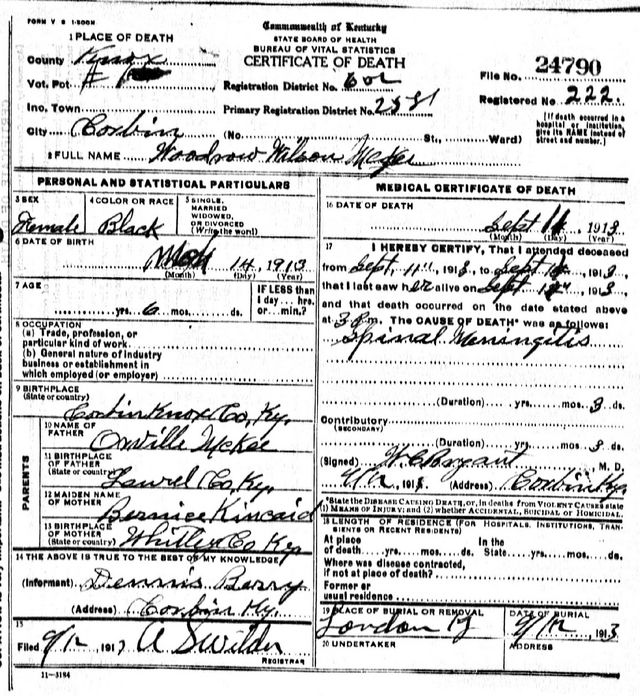 FORM V S 1-500M
Commonwealth of Kentucky
STATE BOARD OF HEALTH
BUREAU OF VITAL STATISTICS
CERTIFICATE OF DEATH
1 PLACE OF DEATH
County Knox
Vot. Pct.
Registration District No. 602
File No. 24790
Ino. Town
Primary Registration District No.
Registered No. 222.
City Corbin (No. St., Ward)
[If death occurred in a hospital or institution, give its NAME instead of street and number.]
2 FULL NAME Woodrow Wilson McKee
PERSONAL AND STATISTICAL PARTICULARS
3 SEX Female
4 COLOR OR RACE Black
5 SINGLE, MARRIED WIDOWED, OR DIVORCED (Write the word)
6 DATE OF BIRTH
14, 1913
(Month) (Day) (Year)
7 AGE
yrs. 6 mos. ds.
IF LESS than 1 day... hrs. or... min.?
8 OCCUPATION
(a) Trade, profession, or particular kind of work
(b) General nature of industry business or establishment in which employed (or employer)
9 BIRTHPLACE
(State or country)
Corbin Knox Co, Ky.
PARENTS
10 NAME OF FATHER Orville McKee
11 BIRTHPLACE OF FATHER (State or country) Laurel Co, Ky.
12 MAIDEN NAME OF MOTHER Bernice Kincaid
13 BIRTHPLACE OF MOTHER (State or country) Whitley Co Ky
14 THE ABOVE IS TRUE TO THE BEST OF MY KNOWLEDGE
(Informant) Dennis Berry
(Address) Corbin Ky.
15
Filed 9/12 1913 A S Wilder
REGISTRAR
11-3184
MEDICAL CERTIFICATE OF DEATH
16 DATE OF DEATH
Sept 1913
(Month) (Day) (Year)
17 I HEREBY CERTIFY, That I attended deceased
from Sept. 11th, 1913, to Sept 1913,
that I last saw her alive on Sept 1913
and that death occurred on the date stated above
at 3 P.m. The CAUSE OF DEATH* was as follows:
Spinal Meningitis
(Duration) yrs. mos. 3 ds.
Contributory
(SECONDARY)
(Duration) yrs. mos. 3 ds.
(Signed) W. C. Bryant M. D.
9/12 1913 (Address) Corbin Ky.
*State the DISEASE CAUSING DEATH, or, in deaths from VIOLENT CAUSES state
1) MEANS OF INJURY; and (2) whether ACCIDENTAL, SUICIDAL or HOMICIDAL.
18 LENGTH OF RESIDENCE (FOR HOSPITALS, INSTITUTIONS, TRANSIENTS OR RECENT RESIDENTS)
At place of death yrs. mos. ds. In the State yrs. mos. ds.
Where was disease contracted, if not at place of death?
Former or usual residence
19 PLACE OF BURIAL OR REMOVAL London Ky
DATE OF BURIAL 9/12 1913
20 UNDERTAKER
ADDRESS